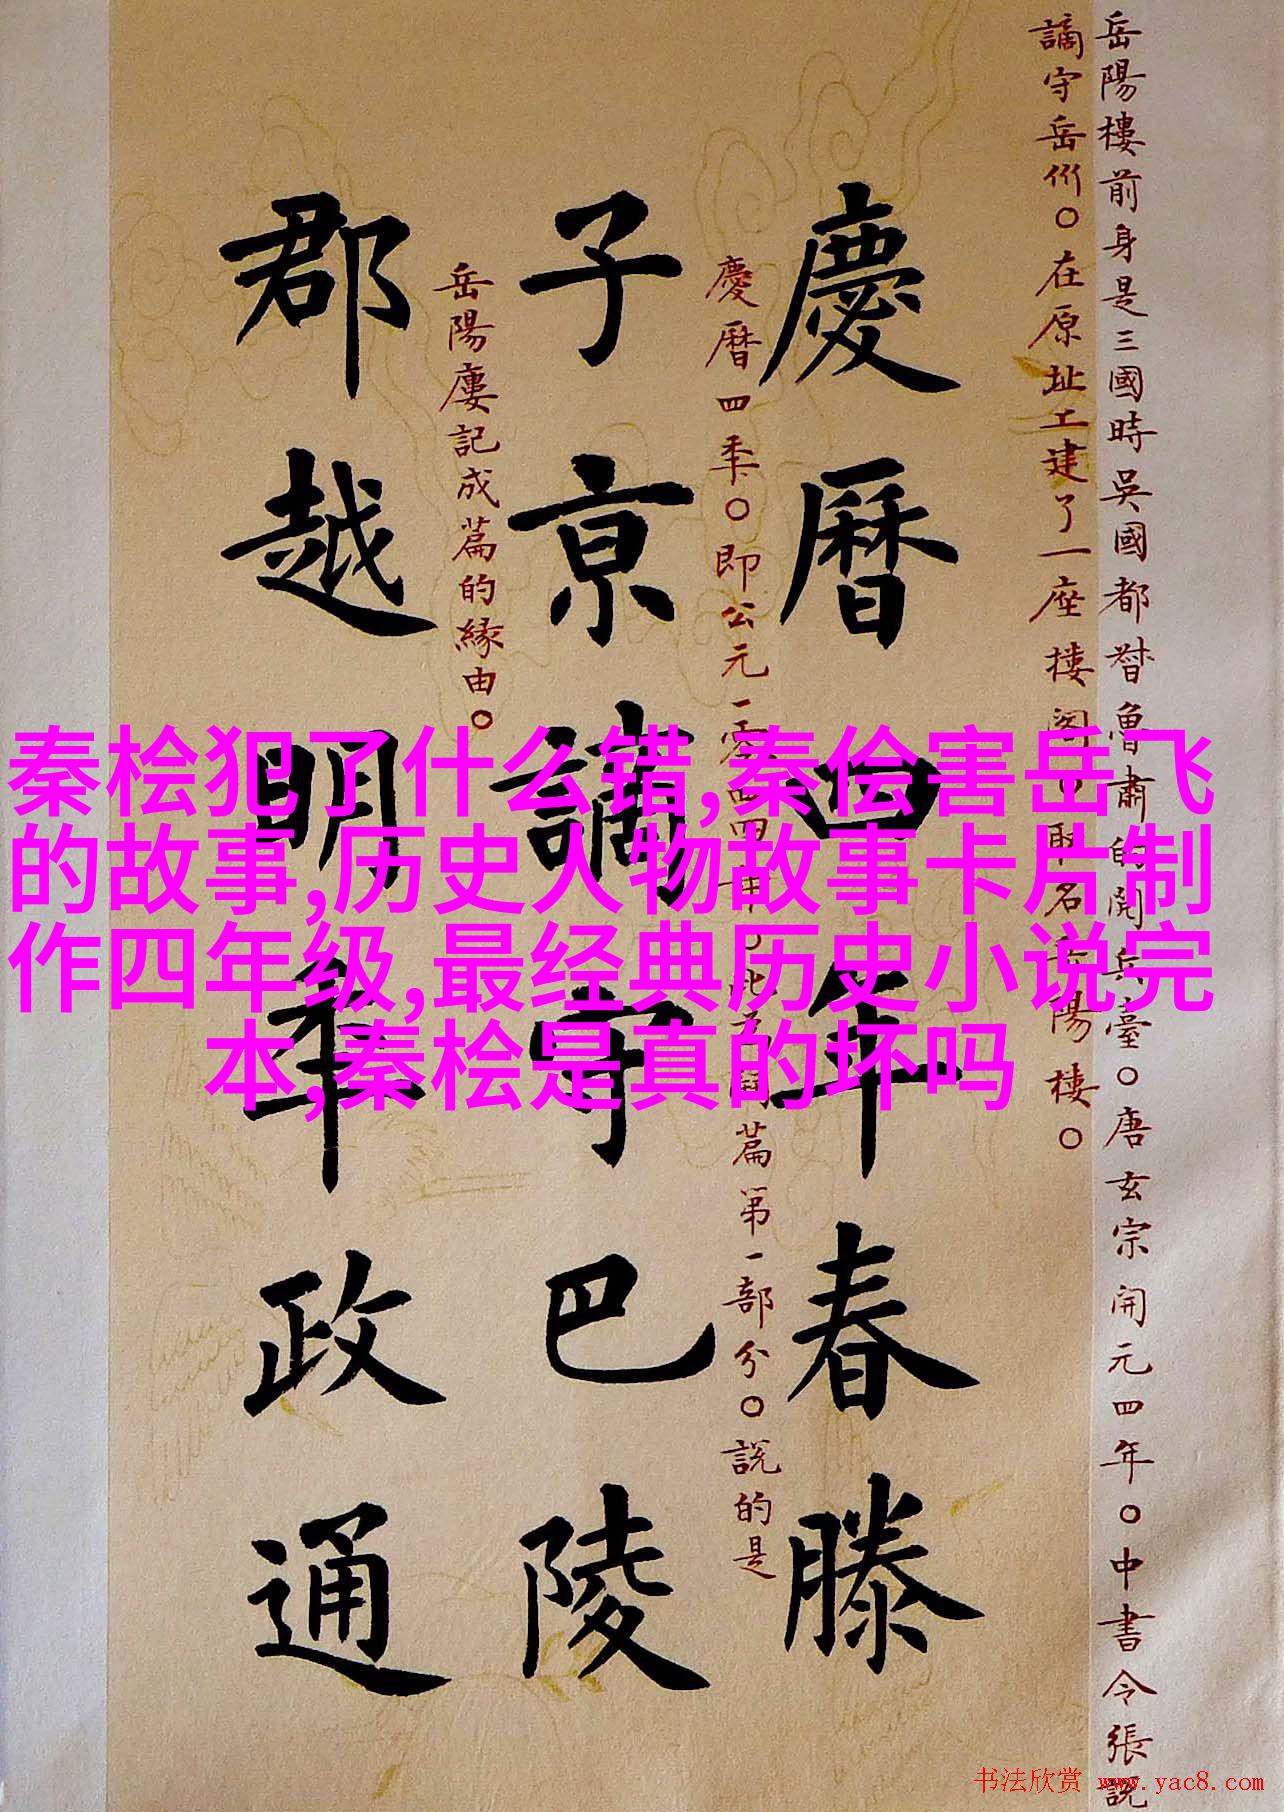 岳陽樓前身是三國時吳國都督魯肅的閱兵臺。唐玄宗開元四年。中書令張說
謫守岳州。在原址工建了一座樓閣。取名岳陽樓。
慶曆四年春滕
慶曆四秊。即公元一零四四年。此篇第一部分。說的是
子京謫守巴陵
岳陽廔記成篇的緣由。
郡越明年政通
秦桧犯了什么错,秦侩害岳飞
的故事,历史人物故事卡片制
作四年级,最经典历史小说完
本,秦桧是真的坏吗
书法欣赏 www.yac8.com